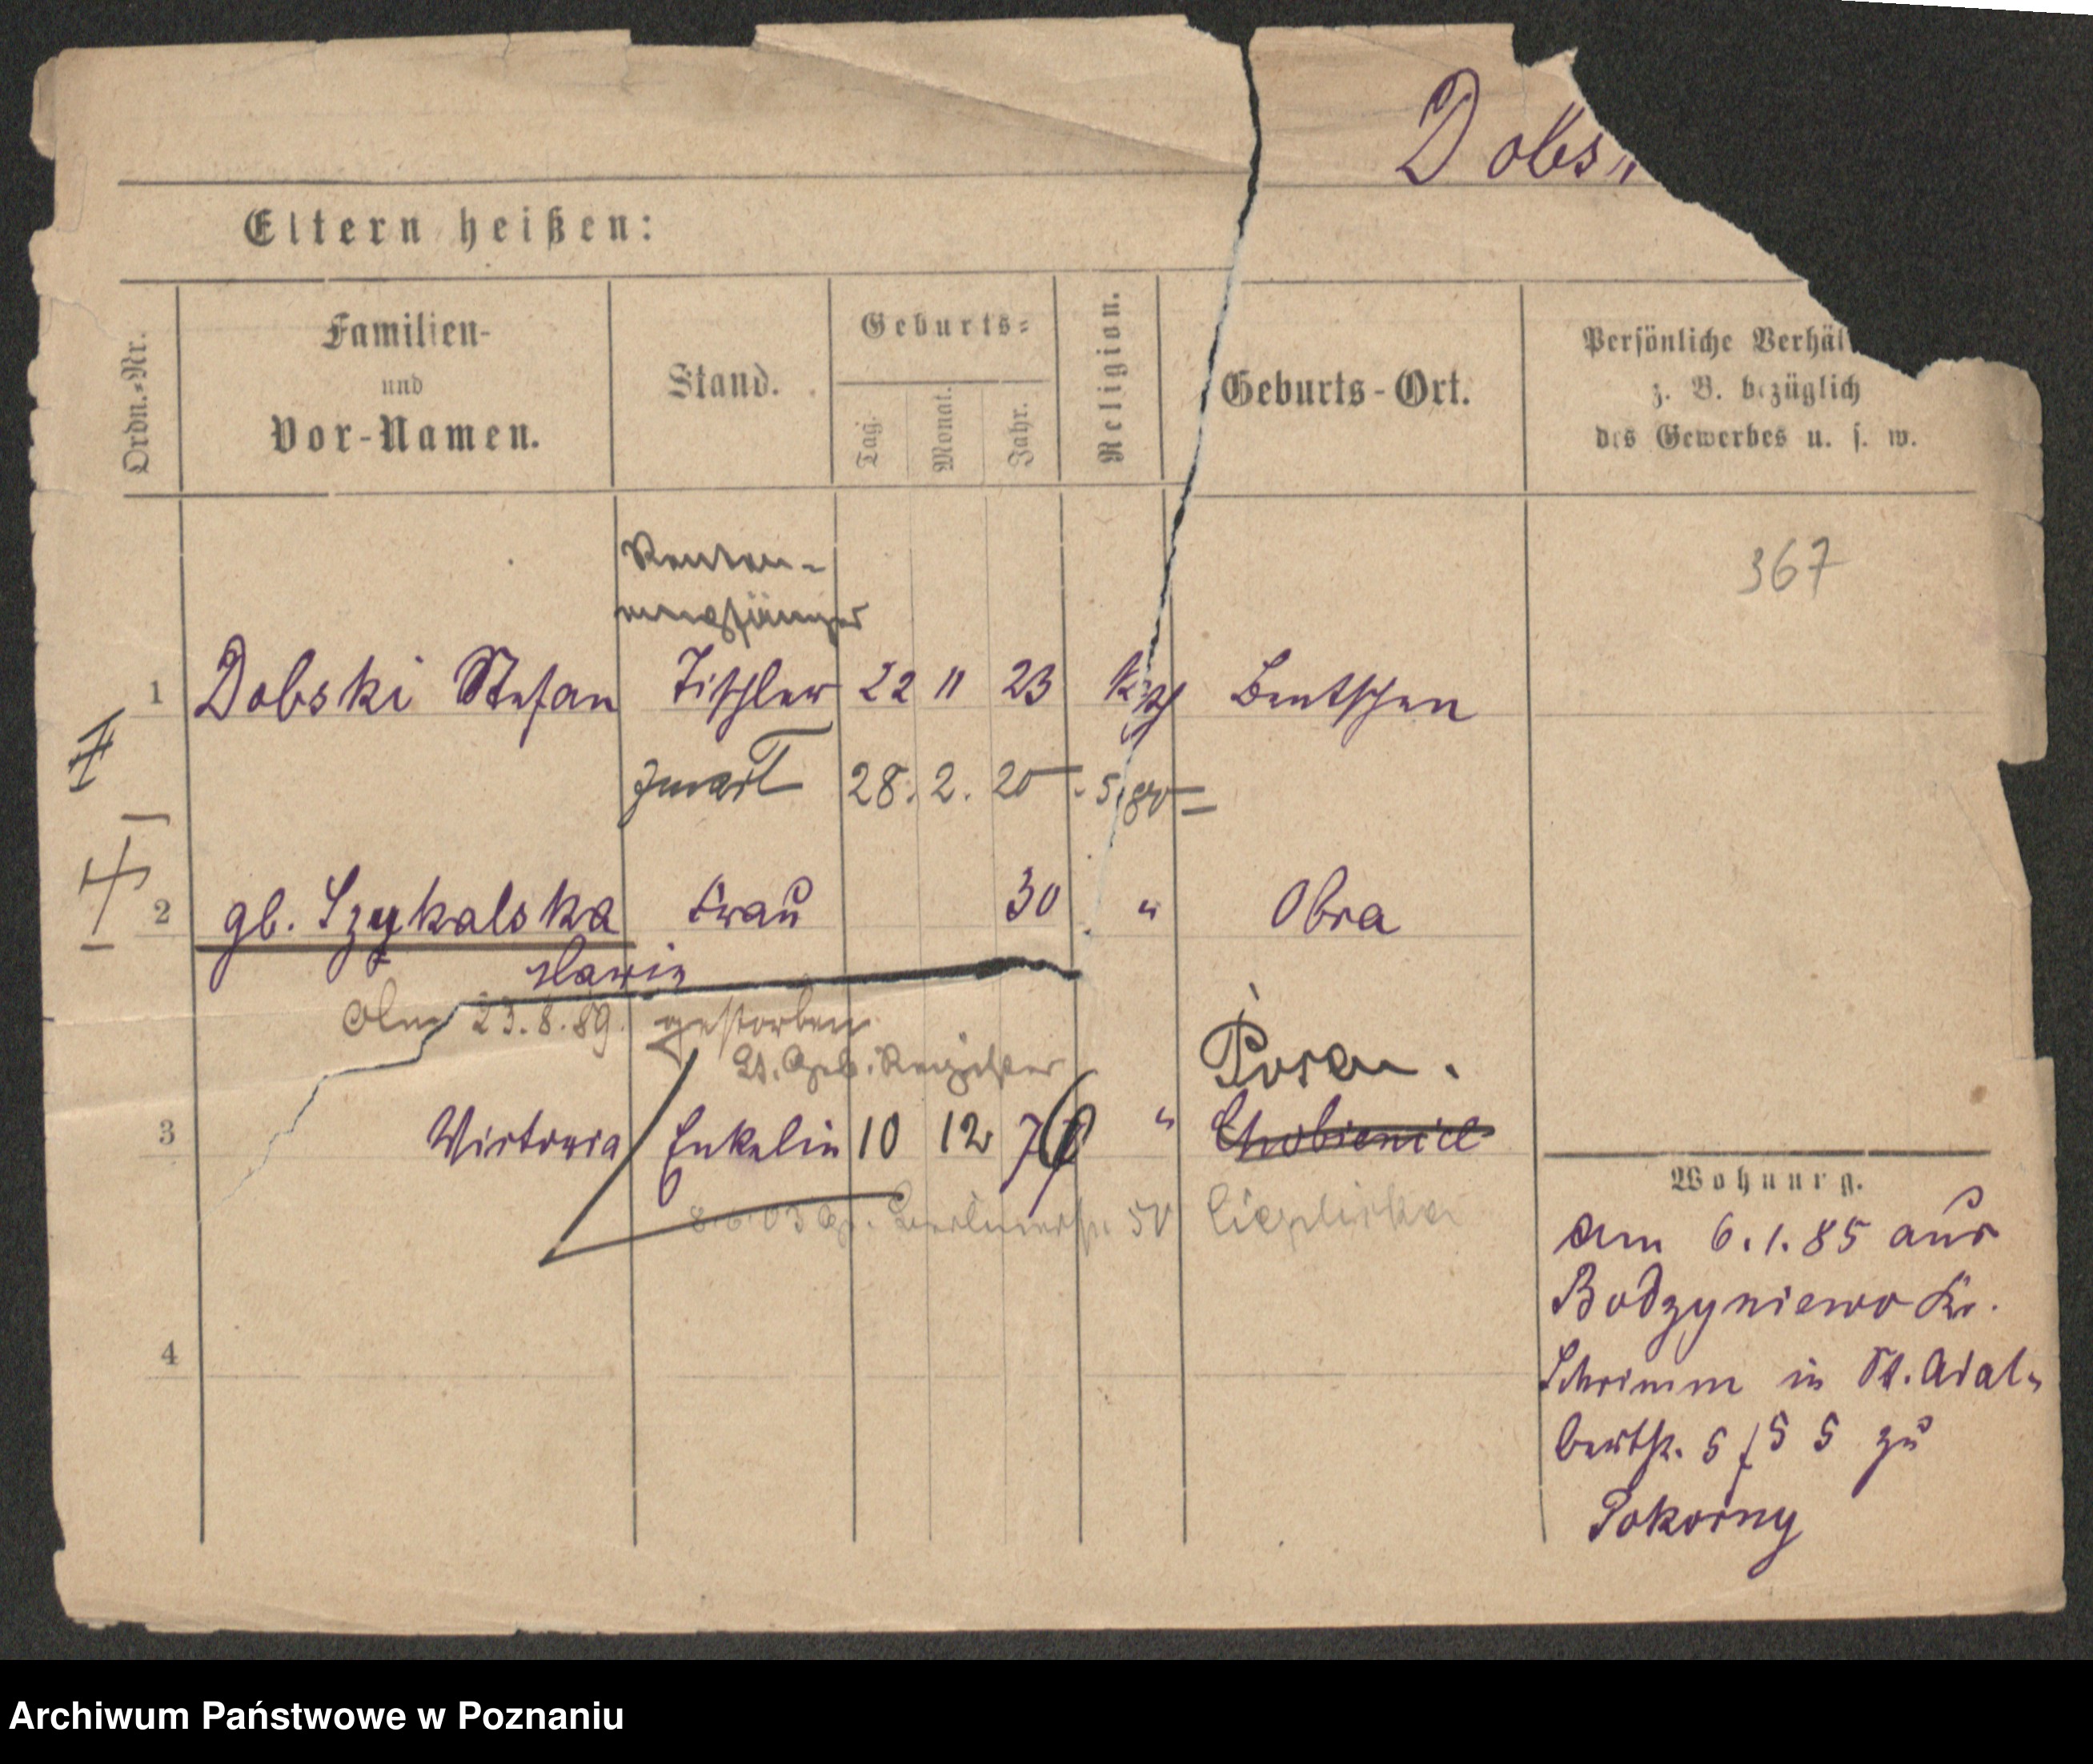 Dobs
Eltern heißen:
Ordn.=Nr.
Familien-
und
Vor-Namen.
Stand.
Geburts=
Tag.
Monat.
Jahr.
Religion.
Geburts-Ort.
Persönliche Verhäl
z. B. bezüglich
des Gewerbes u. s. w.
367
Renten-
empfänger
1 Dobski Stefan Tischler 22 11 23 kath Bentschen
28. 2. 20
2 gb. Szykalska Frau 30 " Obra
Marie
23.8.89. gestorben
Lt. Geb. Register
Posen.
3 Wictoria Enkelin 10 12 " Chobienice
8.6.03
4
Wohnung.
Am 6.1.85 aus
Bodzyniewo Kr.
Schrimm in St. Adal-
bertstr. 5 / 5 5 zu
Pokorny
Archiwum Państwowe w Poznaniu